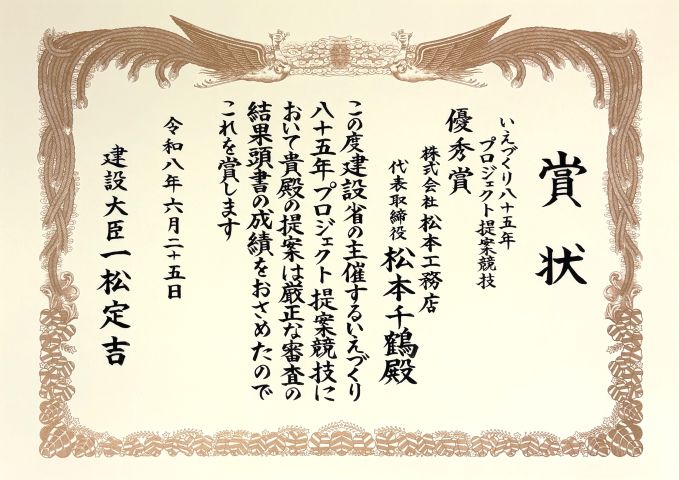 賞状
いえづくり八十五年
プロジェクト提案競技
優秀賞
株式会社 松本工務店
代表取締役 松本千鶴殿
この度建設省の主催するいえづくり
八十五年プロジェクト提案競技に
おいて貴殿の提案は厳正な審査の
結果頭書の成績をおさめたので
これを賞します
令和八年六月二十五日
建設大臣一松定吉